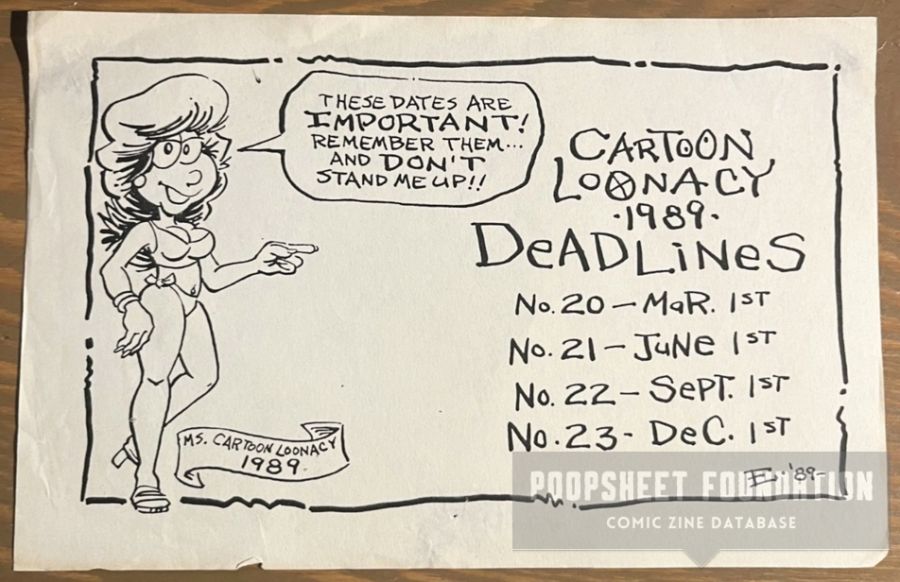 THESE DATES ARE
IMPORTANT!
REMEMBER THEM...
AND DON'T
STAND ME UP!!
CARTOON
LOONACY
·1989·
DeADLiNeS
No. 20 - MaR. 1ST
No. 21 - JuNe 1ST
No. 22 - SePT. 1ST
No. 23 - DeC. 1ST
MS. CARTOON LOONACY
1989.
'89-
POOPSHEET FOUNDATION
COMIC ZINE DATABASE